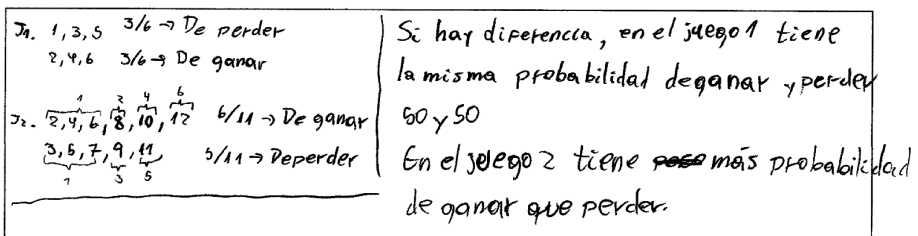 J1. 1, 3, 5 3/6 → De perder
2, 4, 6 3/6 → De ganar
1 2 4 6
J2. 2, 4, 6, 8, 10, 12 6/11 → De ganar
3, 5, 7, 9, 11 5/11 → De perder
1 3 5
Si hay diferencia, en el juego 1 tiene
la misma probabilidad de ganar y perder
50 y 50
En el juego 2 tiene más probabilidad
de ganar que perder.